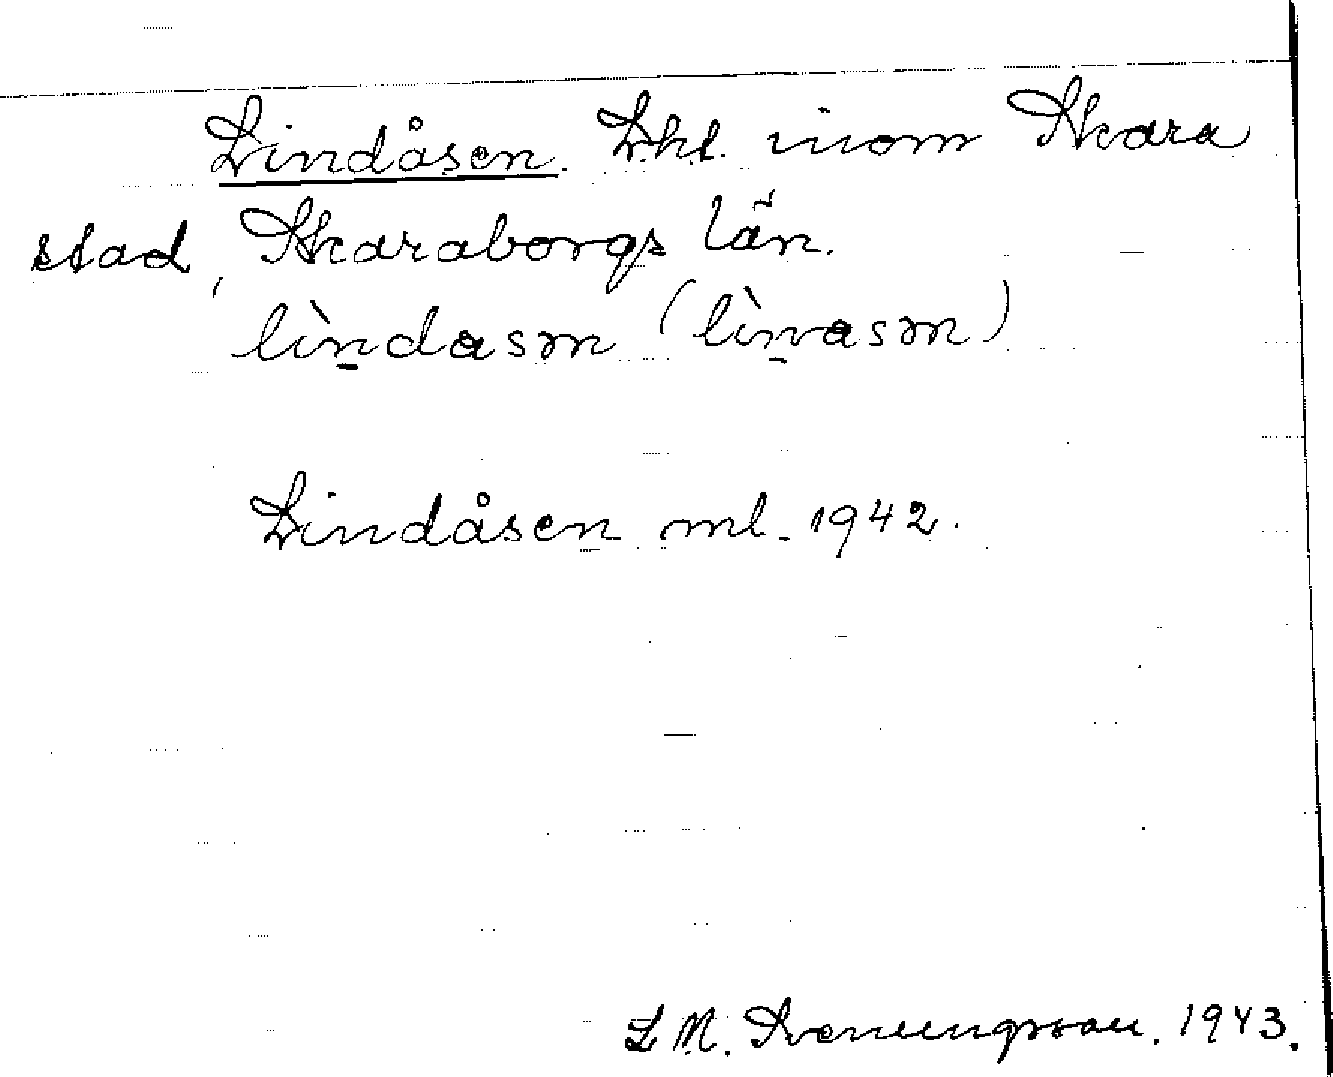 Lindåsen. Lht. inom Skara
stad, Skaraborgs län.
lìndasm (lìnnasm)
Lindåsen ml. 1942.
L M. Svenungsson. 1943.